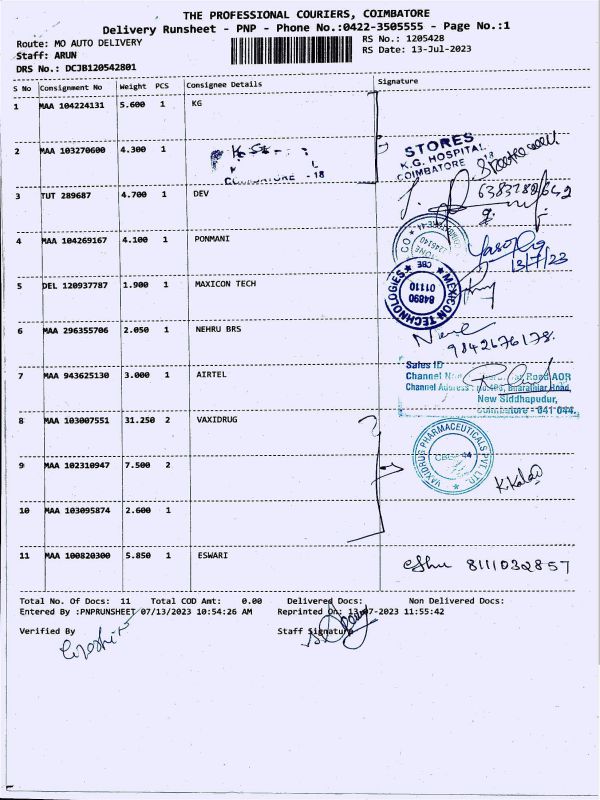 THE PROFESSIONAL COURIERS, COIMBATORE
Delivery Runsheet - PNP - Phone No.:0422-3505555 - Page No.:1
Route: MO AUTO DELIVERY
RS No.: 1205428
Staff: ARUN
RS Date: 13-Jul-2023
DRS No.: DCJB120542801
S No Consignment No Weight PCS Consignee Details Signature
1 MAA 104224131 5.600 1 KG
2 MAA 103270600 4.300 1
STORES
K.G. HOSPITAL
COIMBATORE - 18
3 TUT 289687 4.700 1 DEV
4 MAA 104269167 4.100 1 PONMANI
13/7/23
5 DEL 120937787 1.900 1 MAXICON TECH
MEXICON TECHNOLOGIES
CBE
01110
84890
6 MAA 296355706 2.050 1 NEHRU BRS
9842676178.
7 MAA 943625130 3.000 1 AIRTEL
Sales ID
Channel
Road AOR
Channel Address : no.408, Bharathiar Road,
New Siddhapudur,
Coimbatore - 641 044.
8 MAA 103007551 31.250 2 VAXIDRUG
VAXIDRUG PHARMACEUTICALS PVT. LTD.
9 MAA 102310947 7.500 2
10 MAA 103095874 2.600 1
11 MAA 100820300 5.850 1 ESWARI
8111032857
Total No. Of Docs: 11 Total COD Amt: 0.00 Delivered Docs: Non Delivered Docs:
Entered By :PNPRUNSHEET 07/13/2023 10:54:26 AM Reprinted On: 13-07-2023 11:55:42
Verified By
Staff Signature